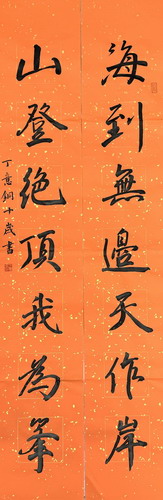 海到無邊天作岸
山登絶頂我為峯
丁意鈉十歲書